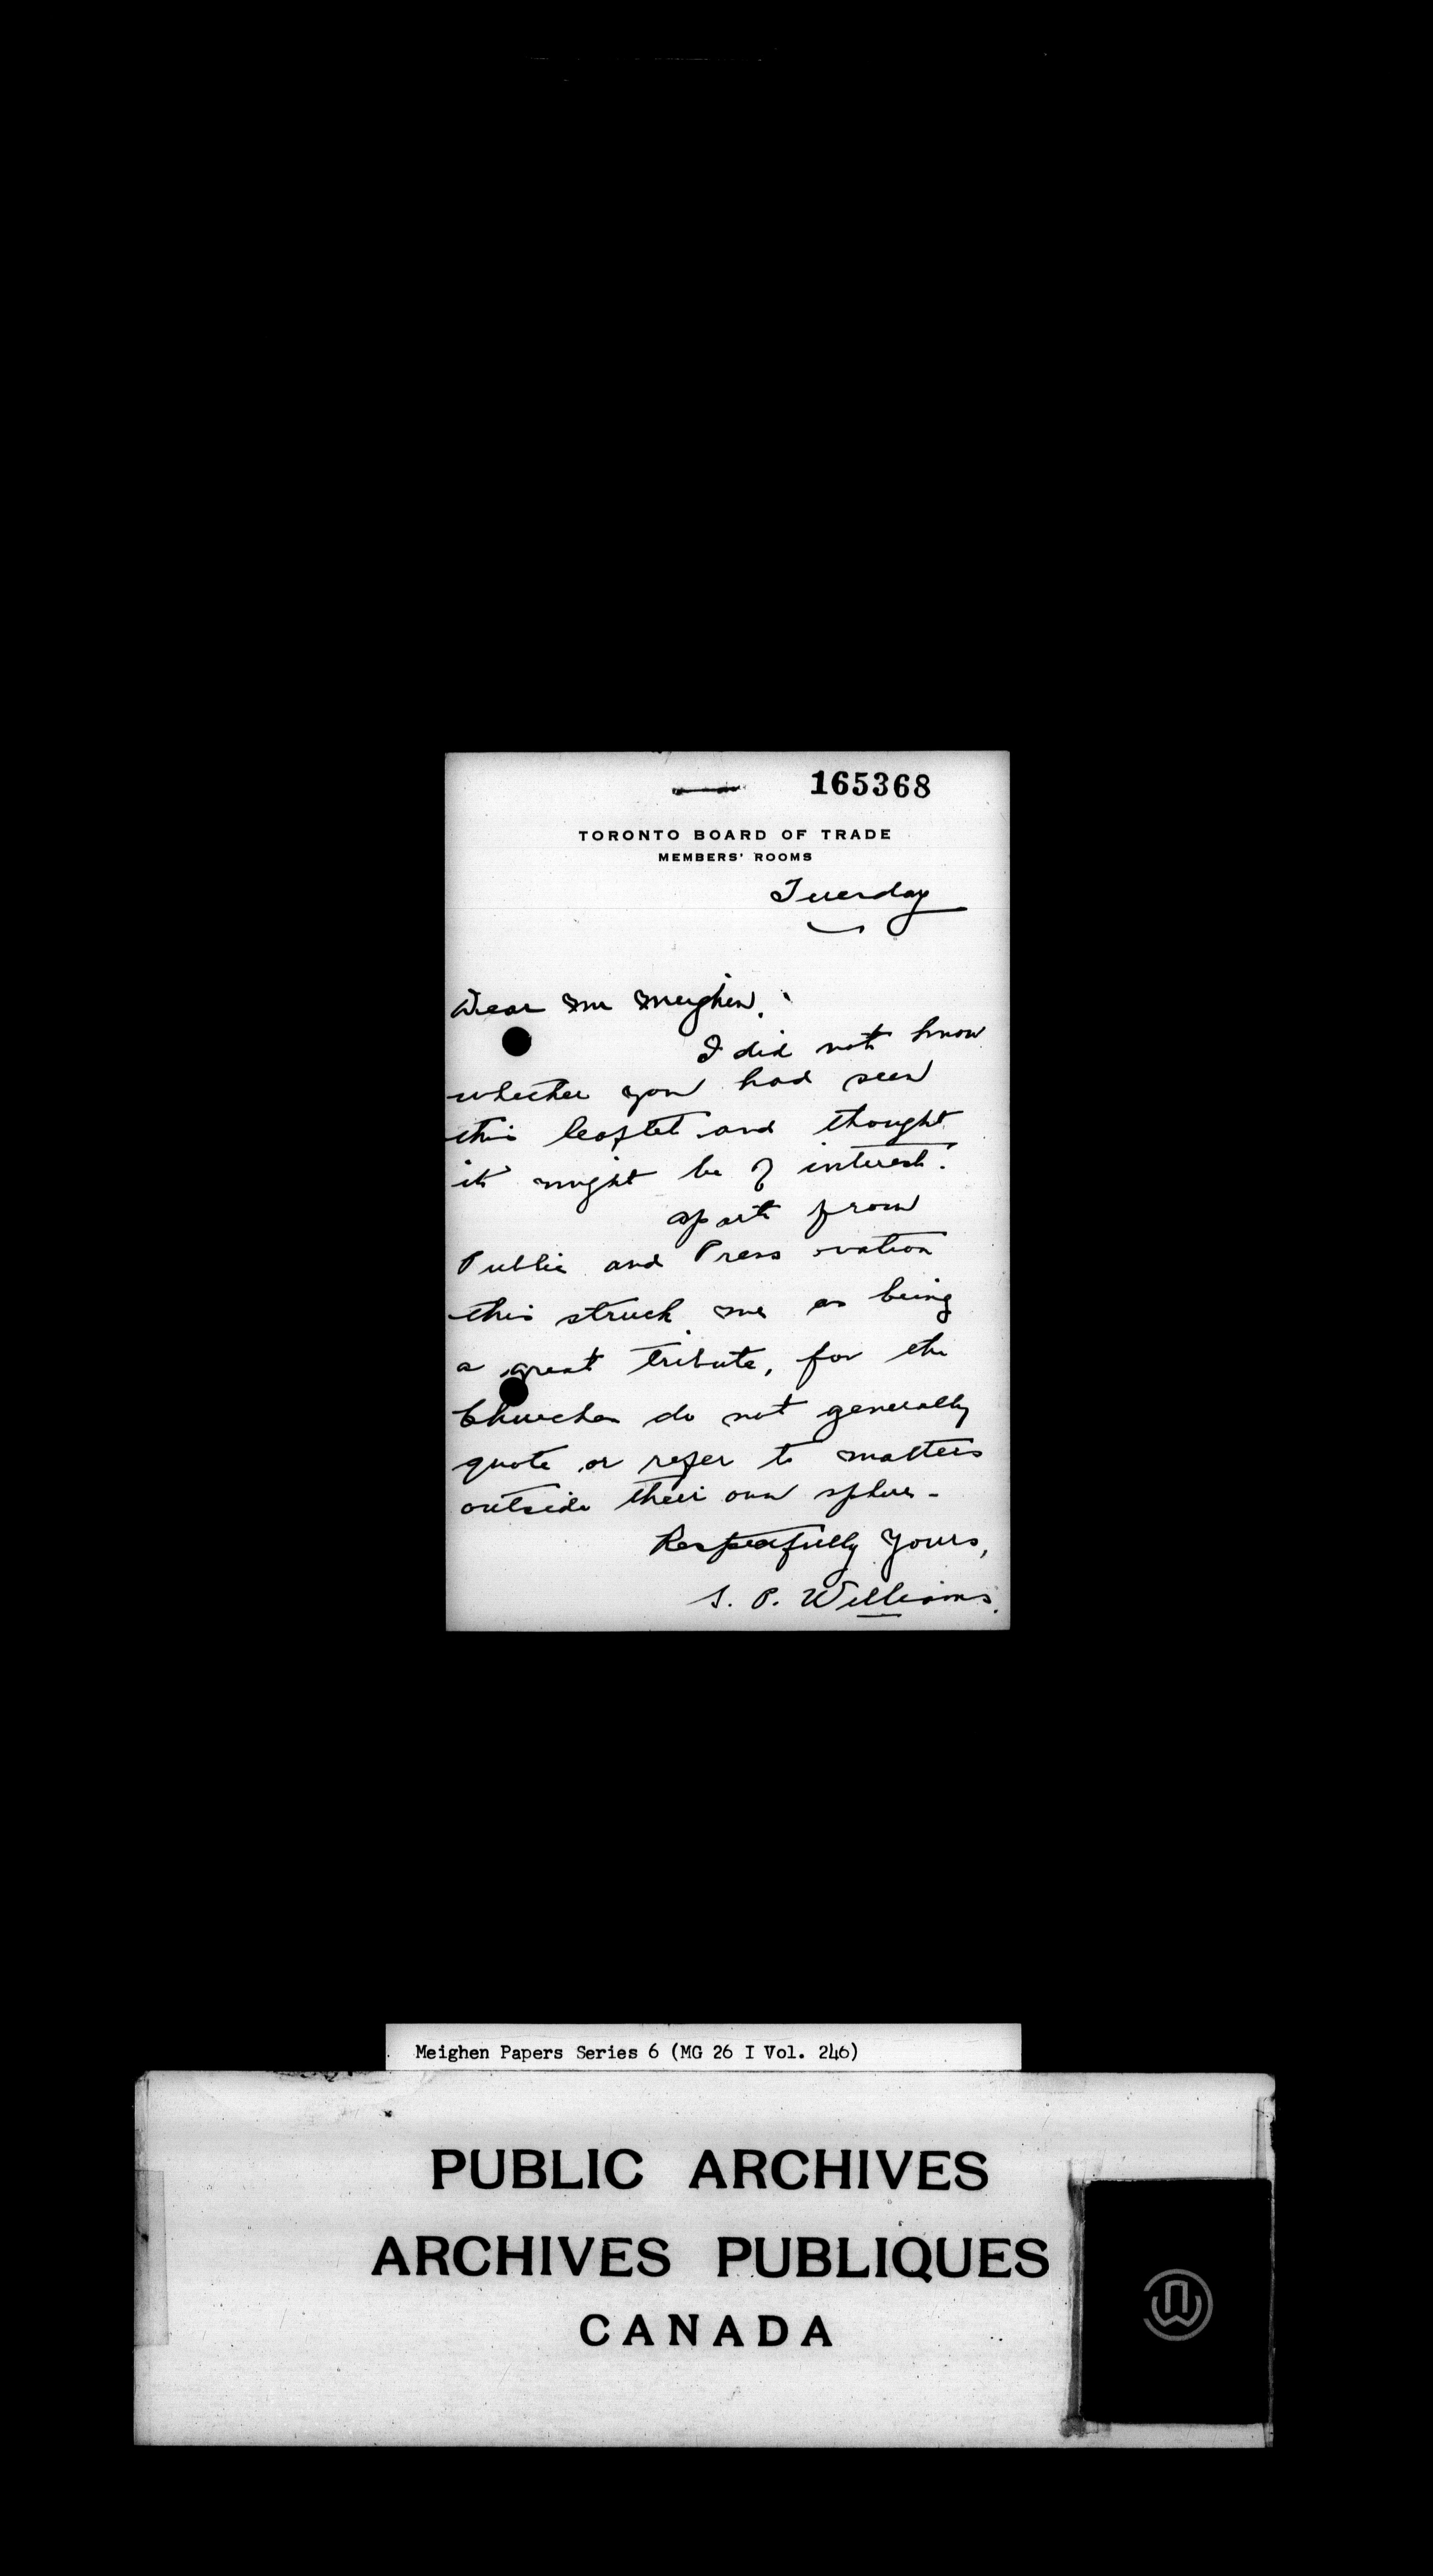 165368
TORONTO BOARD OF TRADE
MEMBERS' ROOMS
Tuesday
Dear Mr Meighen.
I did not know
whether you had seen
this leaflet and thought
it might be of interest.
Apart from
Public and Press ovation
this struck me as being
a great tribute, for the
Churches do not generally
quote or refer to matters
outside their own sphere -
Respectfully Yours,
S. P. Williams.
Meighen Papers Series 6 (MG 26 I Vol. 246)
PUBLIC ARCHIVES
ARCHIVES PUBLIQUES
CANADA